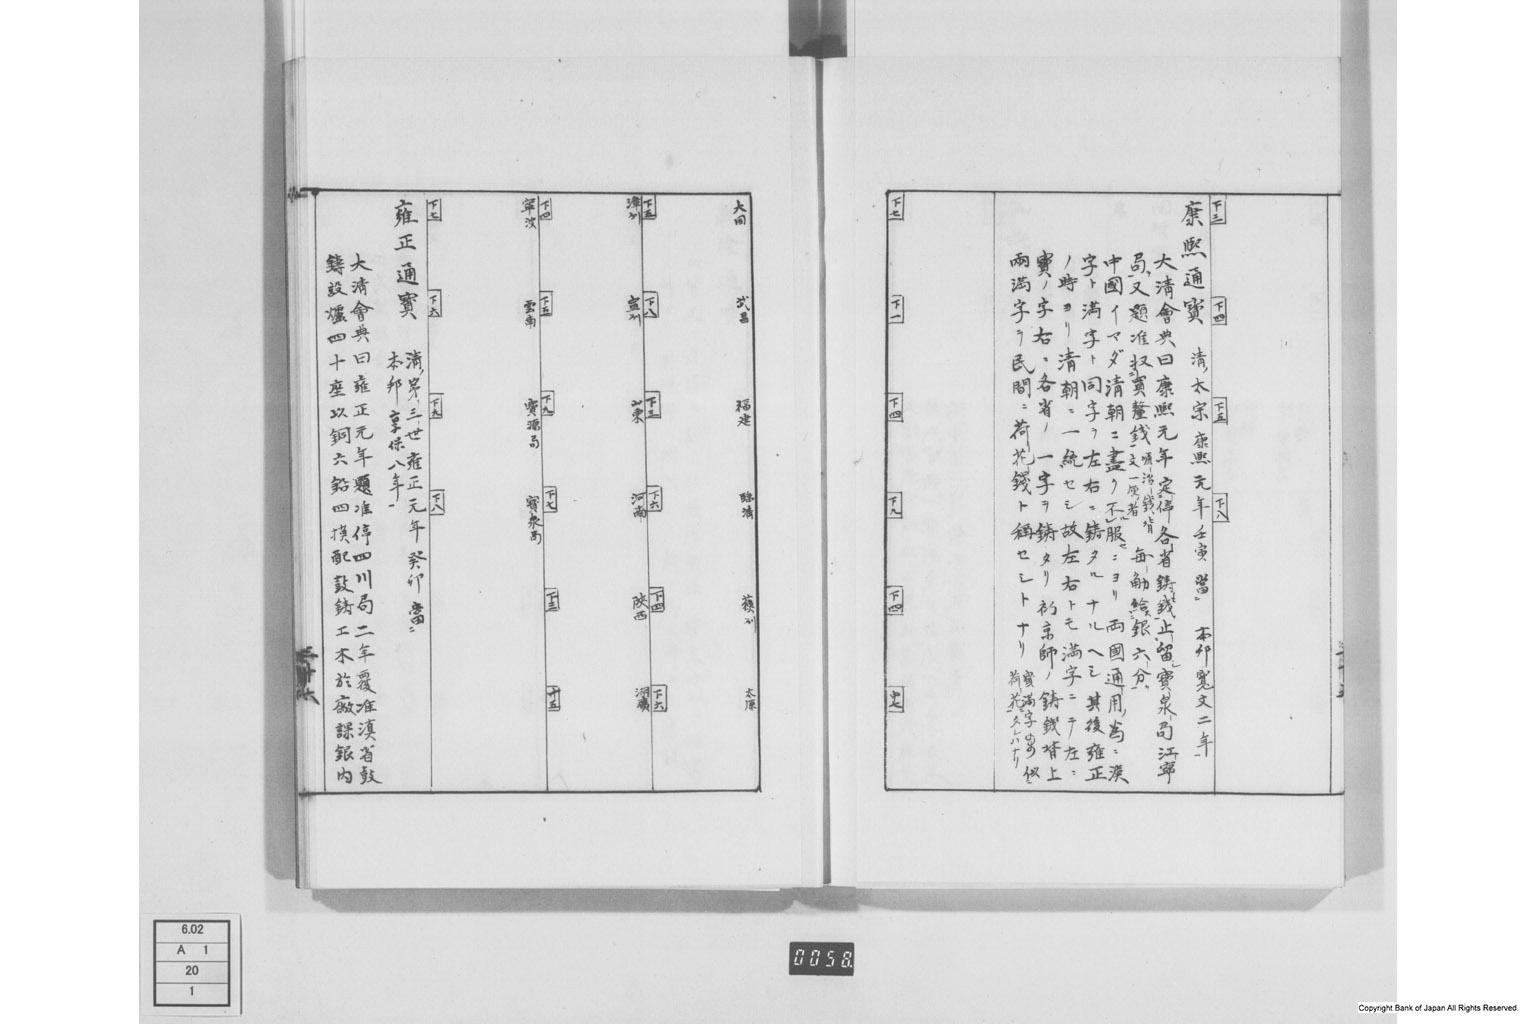 下三
下四
下五
下八
康熙通寳
清ノ太宗康熙元年壬寅當 本邦寛文二年
大清會典曰康熙元年定停各省鋳錢止留寳泉局江寧
局又題准
銭一文一厘者
毎觔給銀六分
中國イマダ清朝ニ盡ク不服ニヨリ両國通用ノ為ニ漢
字ト満字ト同字ヲ左右ニ鋳タルナルヘシ其後雍正
ノ時ヨリ清朝ニ一統セシ故左右トモ満字ニテ左ニ
寳ノ字右ニ各省ノ一字ヲ鋳タリ初京師ノ鋳錢背上
両満字ヲ民間ニ荷花錢ト稱セシトナリ
寳満字
荷花
下七
下一
下四
下九
下四
中七
大同
武昌
福建
臨清
蘓州
太原
下五
下八
下三
下六
下四
下六
漳州
宣州
山東
河南
陝西
湖廣
下四
下五
下九
下七
下三
十五
寧波
雲南
寳源局
寳泉局
下七
下六
下九
下八
雍正通寳
清ノ第三世雍正元年癸卯當
本邦享保八年
大清會典曰雍正元年題准停四川局二年覆准滇省鼓
鋳設爐四十座以銅六鉛四
配鼓鋳工本於廠課銀内
三十六
6.02
A 1
20
1
0058
Copyright Bank of Japan All Rights Reserved.